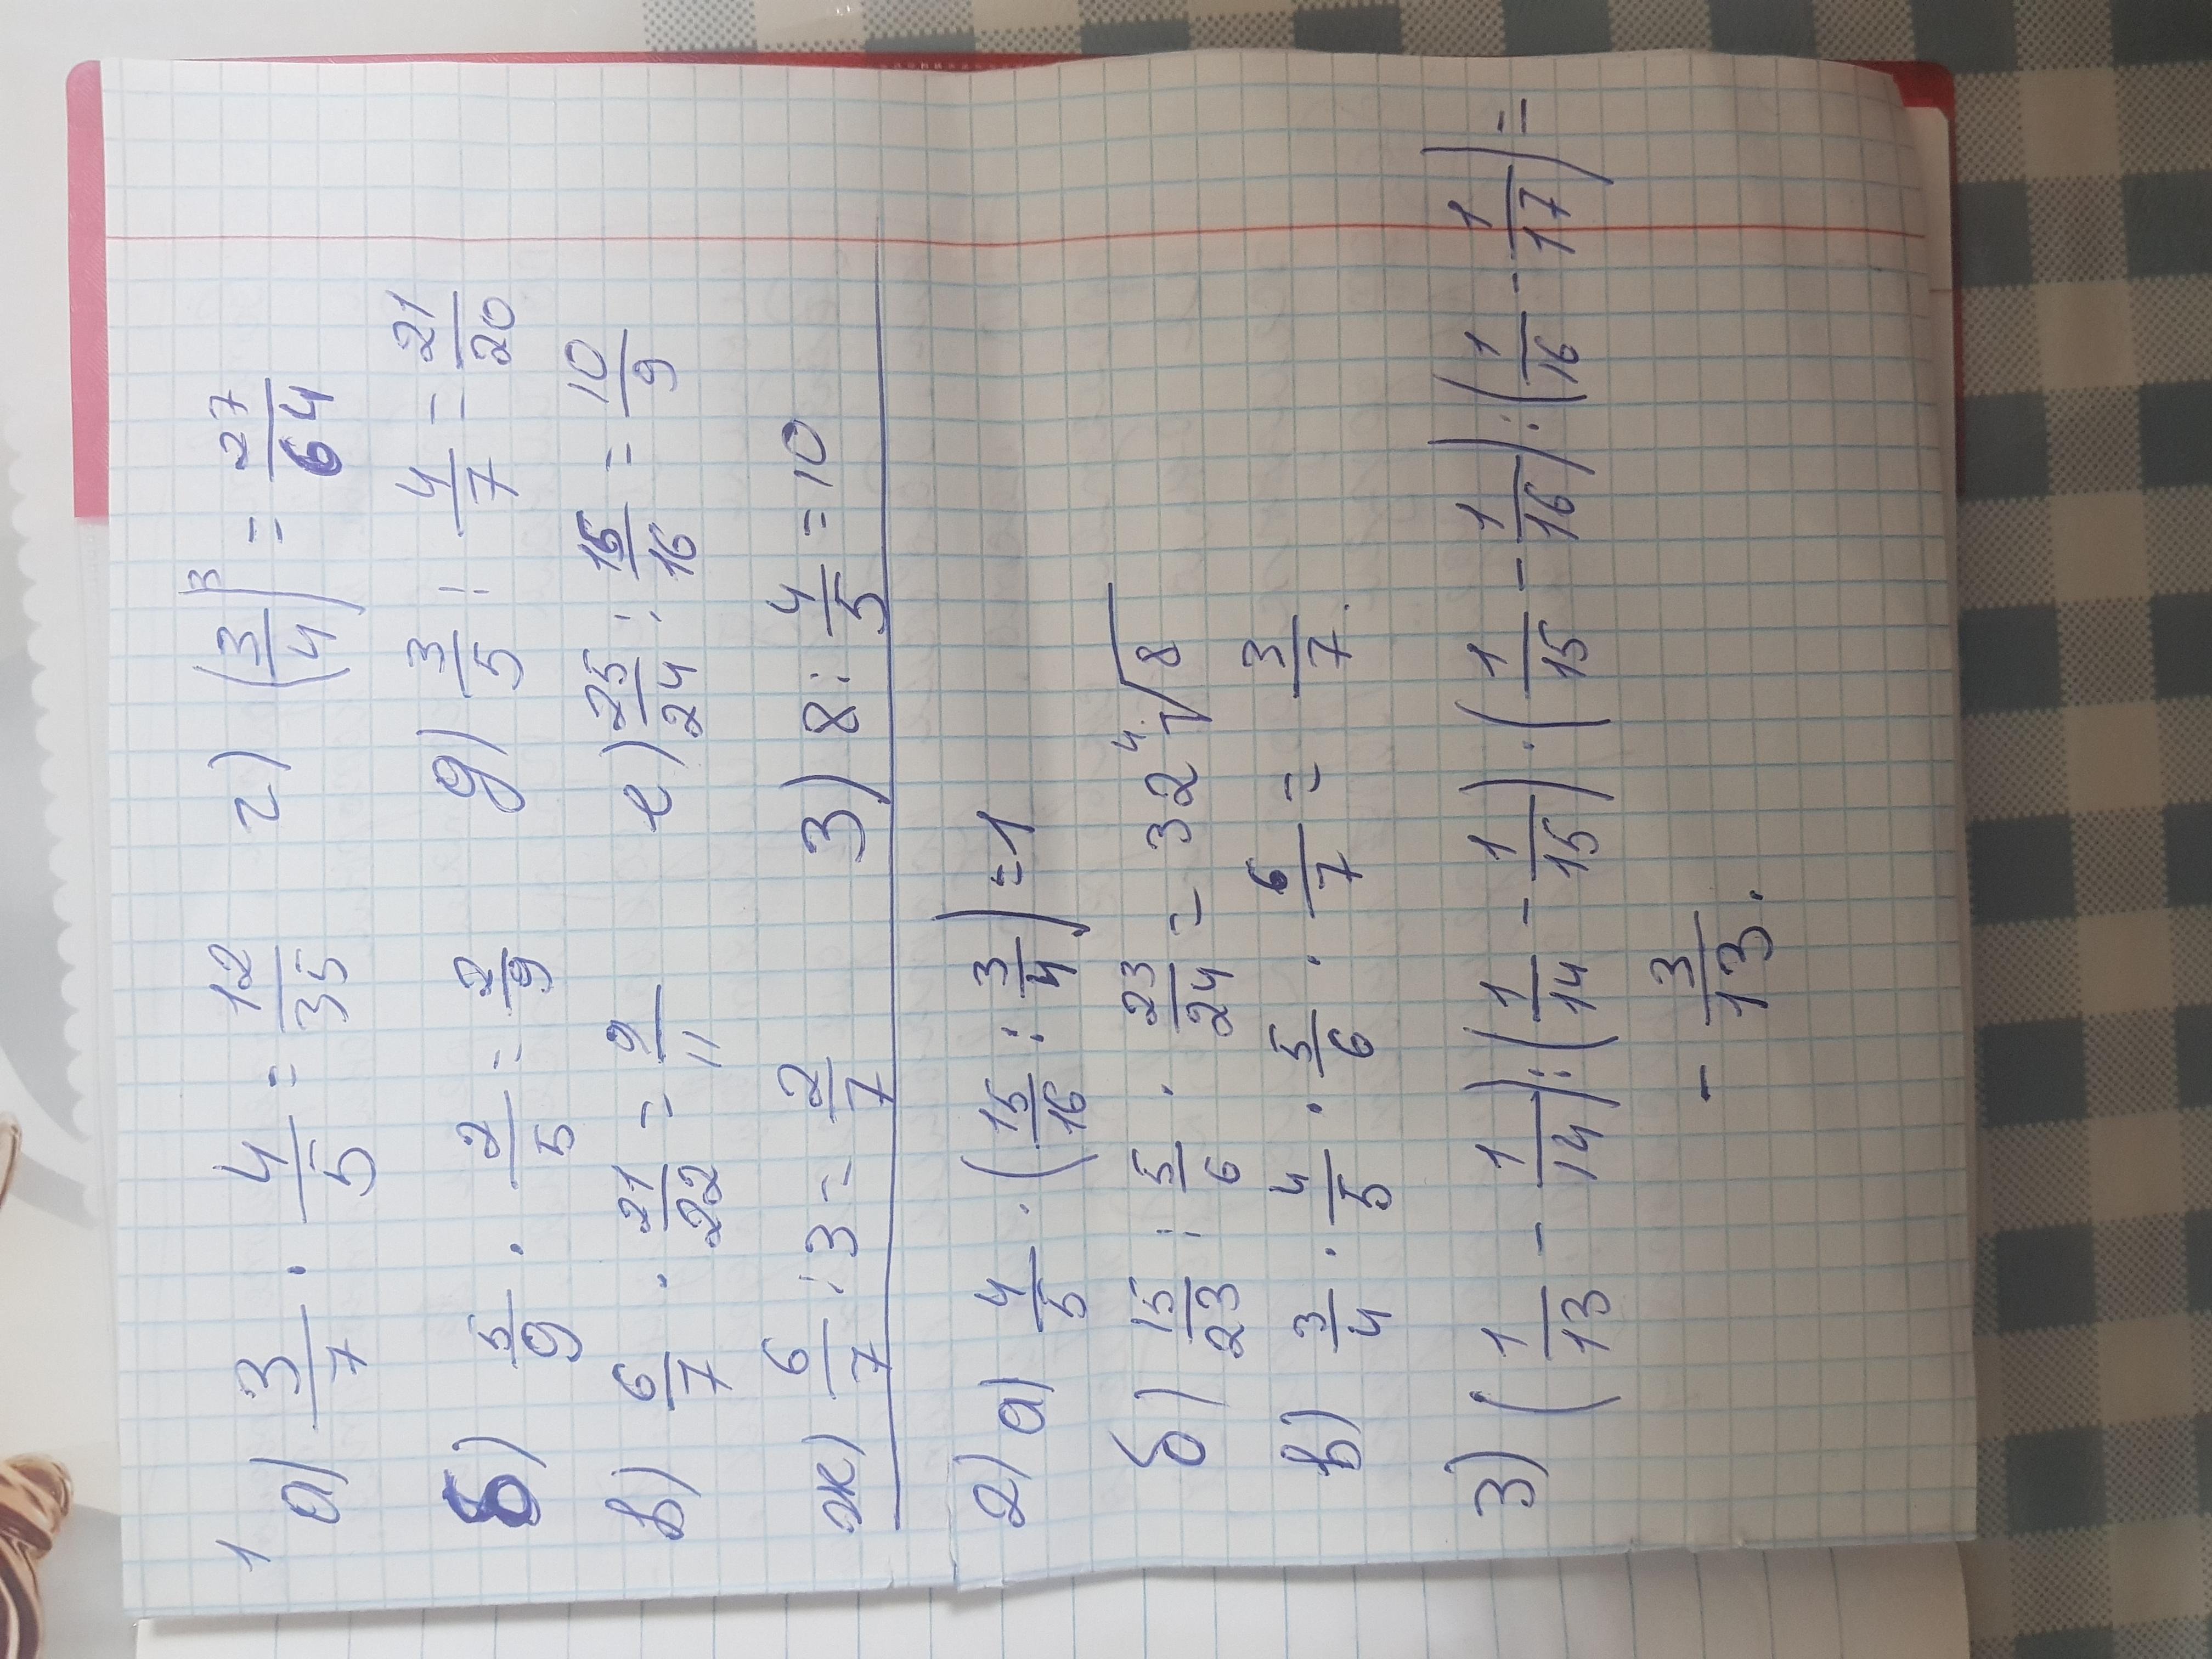 1
а) 3/7 · 4/5 = 12/35 г) (3/4)³ = 27/64
б) 5/9 · 2/5 = 2/9 д) 3/5 : 4/7 = 21/20
в) 6/7 · 21/22 = 9/11 е) 25/24 : 15/16 = 10/9
ж) 6/7 : 3 = 2/7 З) 8 : 4/5 = 10
2) а) 4/5 · (15/16 : 3/4) = 1
б) 15/23 : 5/6 · 23/24 = 32 ⁴√8
в) 3/4 · 4/5 · 5/6 · 6/7 = 3/7.
3) (1/13 - 1/14) : (1/14 - 1/15) · (1/15 - 1/16) : (1/16 - 1/17) =
- 3/13.